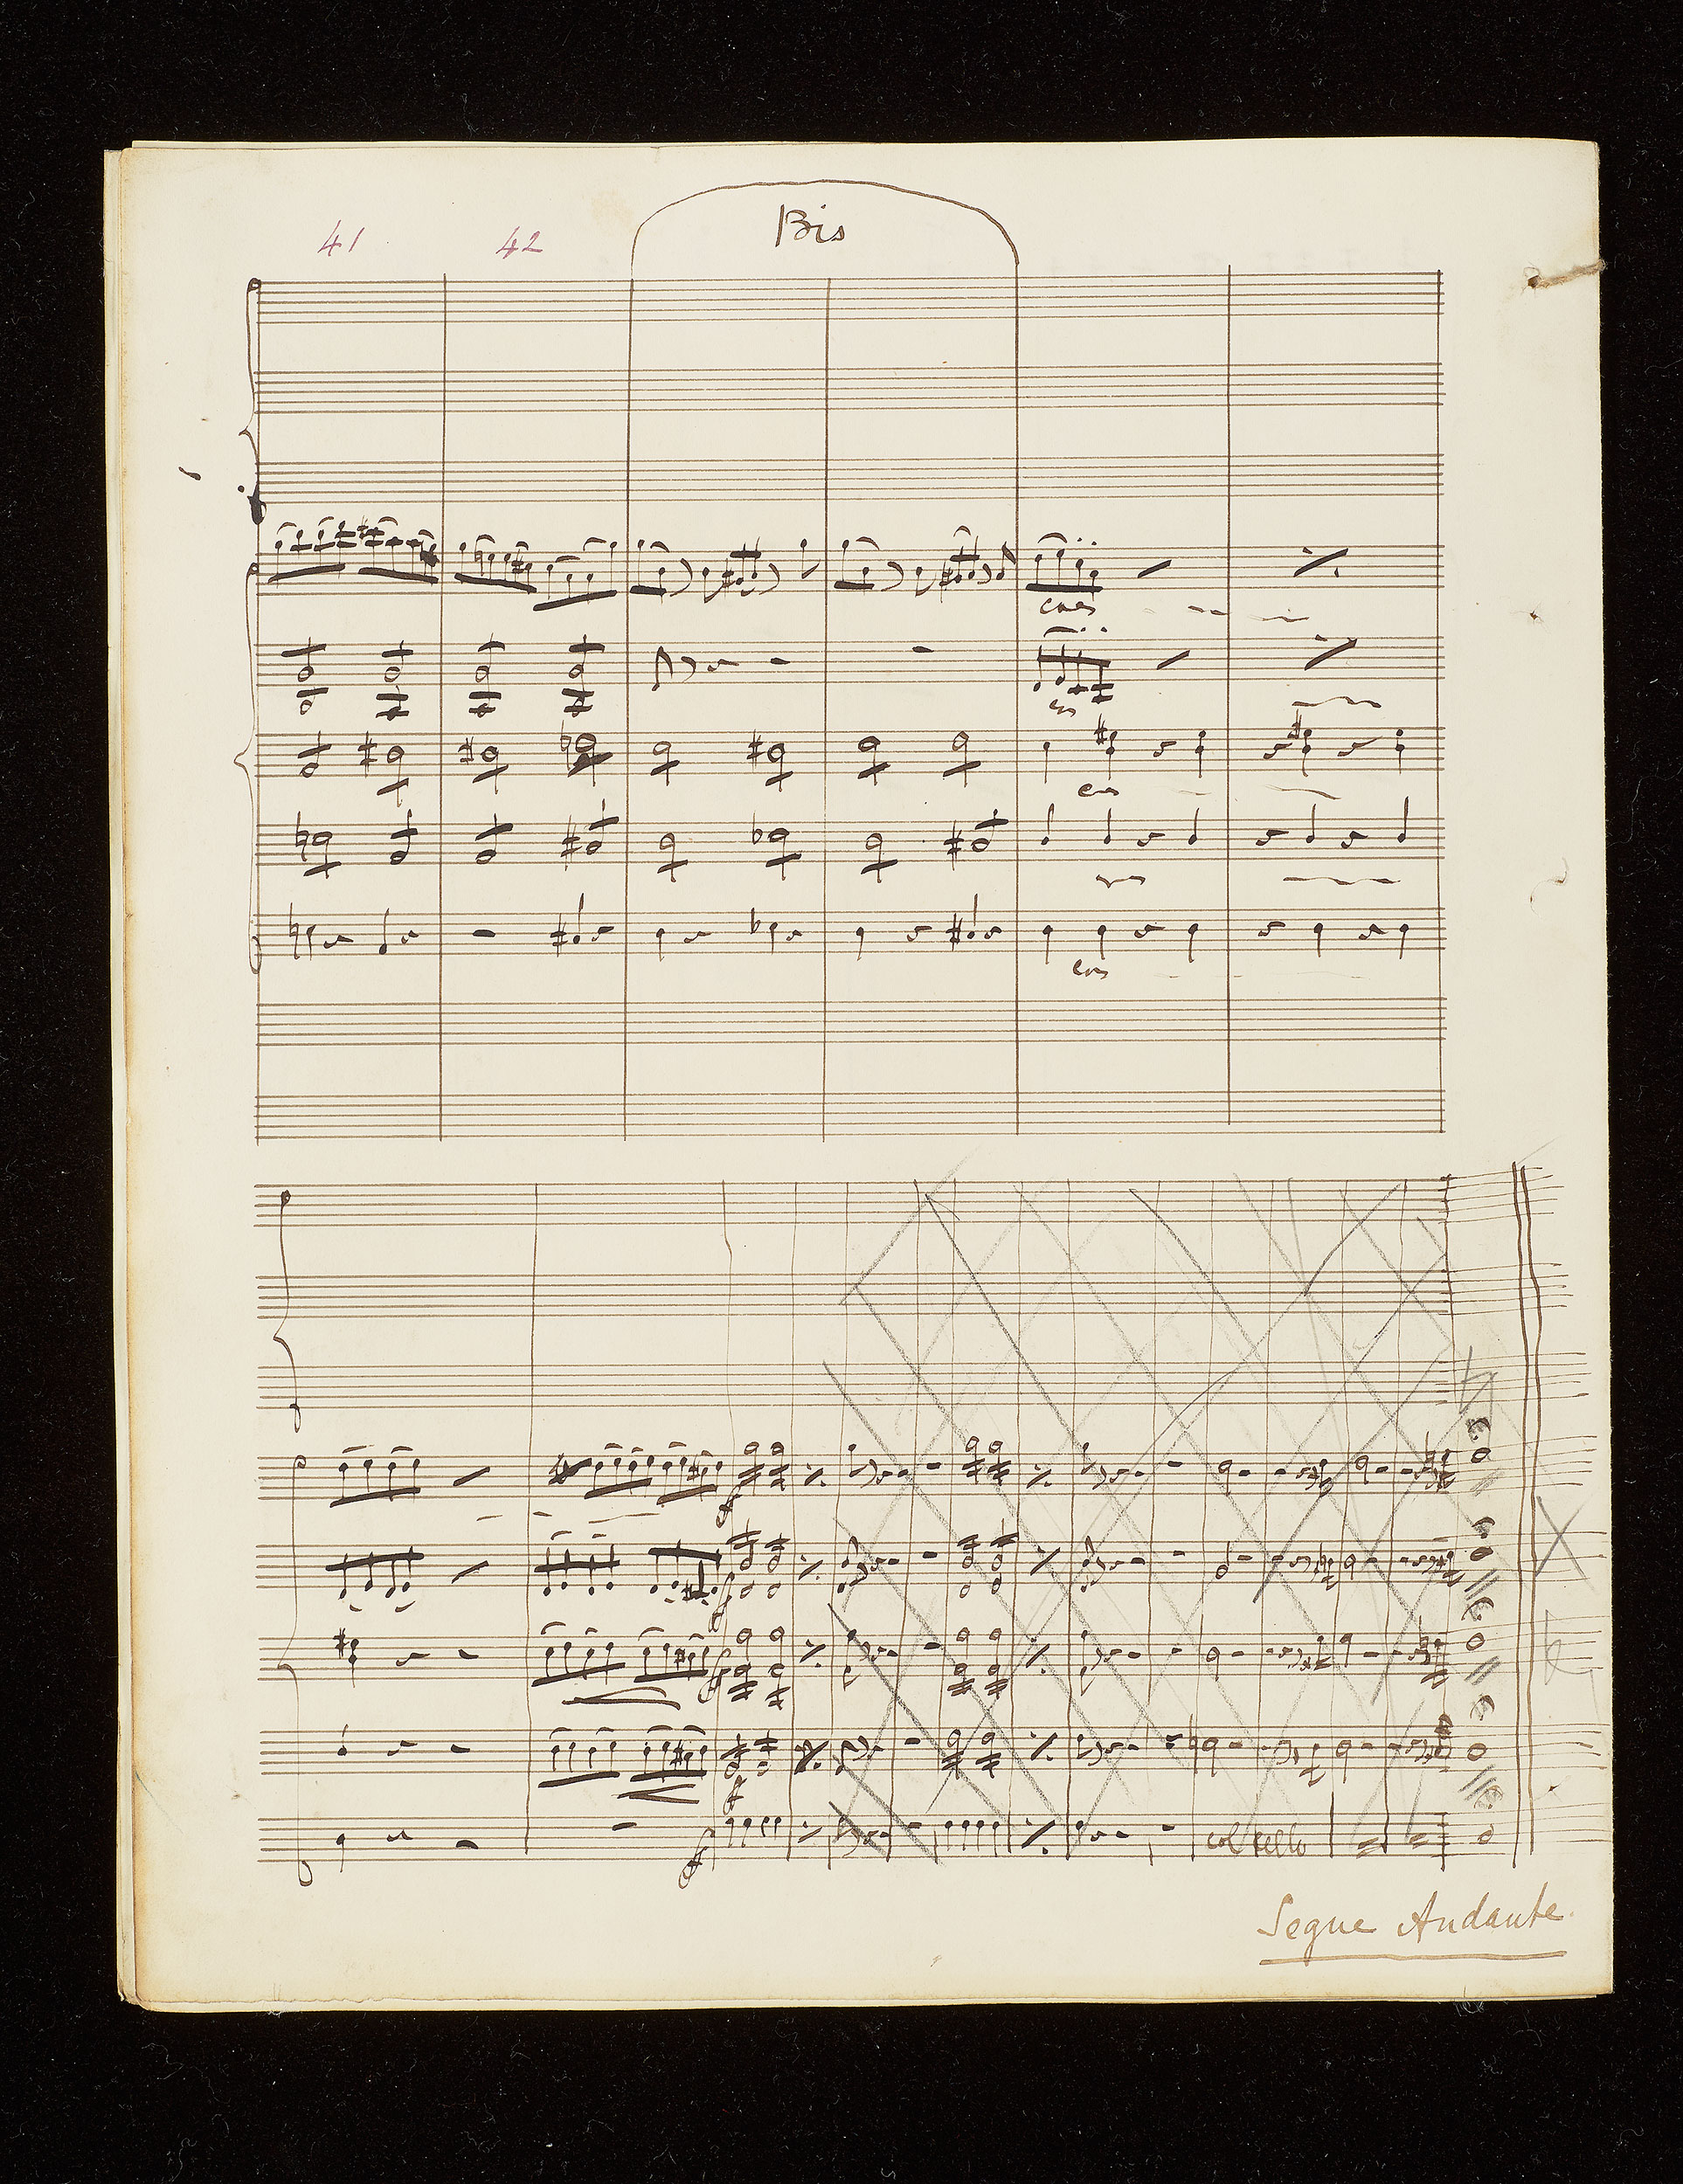 41 42 Bis
cres
cres
cres
cres
f
f
f
f
f
col cello
Segue Andante